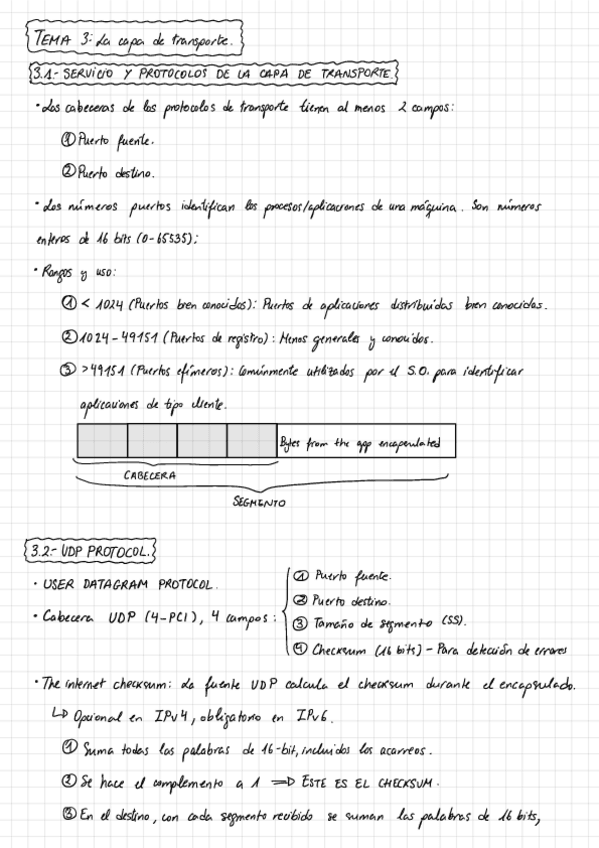 TEMA 3: La capa de transporte.
3.1- SERVICIO Y PROTOCOLOS DE LA CAPA DE TRANSPORTE.
• Las cabeceras de los protocolos de transporte tienen al menos 2 campos:
① Puerto fuente.
② Puerto destino.
• Los números puertos identifican los procesos/aplicaciones de una máquina. Son números
enteros de 16 bits (0-65535):
• Rangos y uso:
① < 1024 (Puertos bien conocidos): Puertos de aplicaciones distribuidas bien conocidas.
② 1024-49151 (Puertos de registro): Menos generales y conocidos.
③ >49151 (Puertos efímeros): Comúnmente utilizados por el S.O. para identificar
aplicaciones de tipo cliente.
Bytes from the app encapsulated
CABECERA
SEGMENTO
3.2- UDP PROTOCOL.
• USER DATAGRAM PROTOCOL.
• Cabecera UDP (4-PCI), 4 campos:
① Puerto fuente.
② Puerto destino.
③ Tamaño de segmento (SS).
④ Checksum (16 bits) - Para detección de errores
• The internet checksum: La fuente UDP calcula el checksum durante el encapsulado.
↳ Opcional en IPv4, obligatorio en IPv6.
① Suma todas las palabras de 16-bit, incluidos los acarreos.
② Se hace el complemento a 1 ⇒ ESTE ES EL CHECKSUM.
③ En el destino, con cada segmento recibido se suman las palabras de 16 bits,